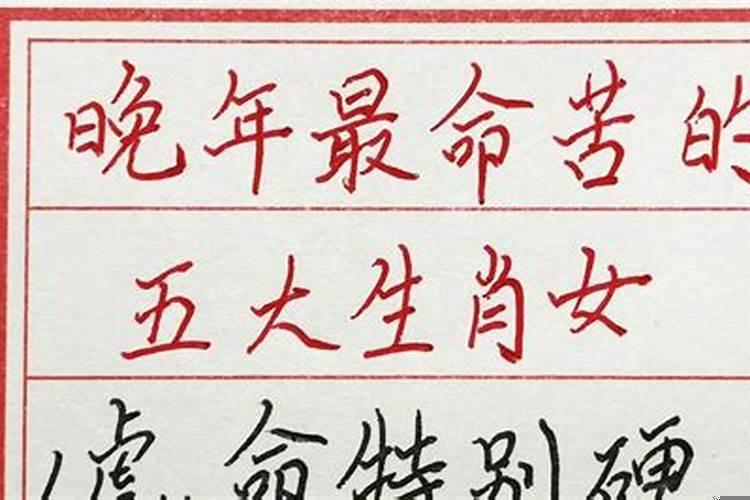 晚年最命苦的
五大生肖女
虎命特别硬